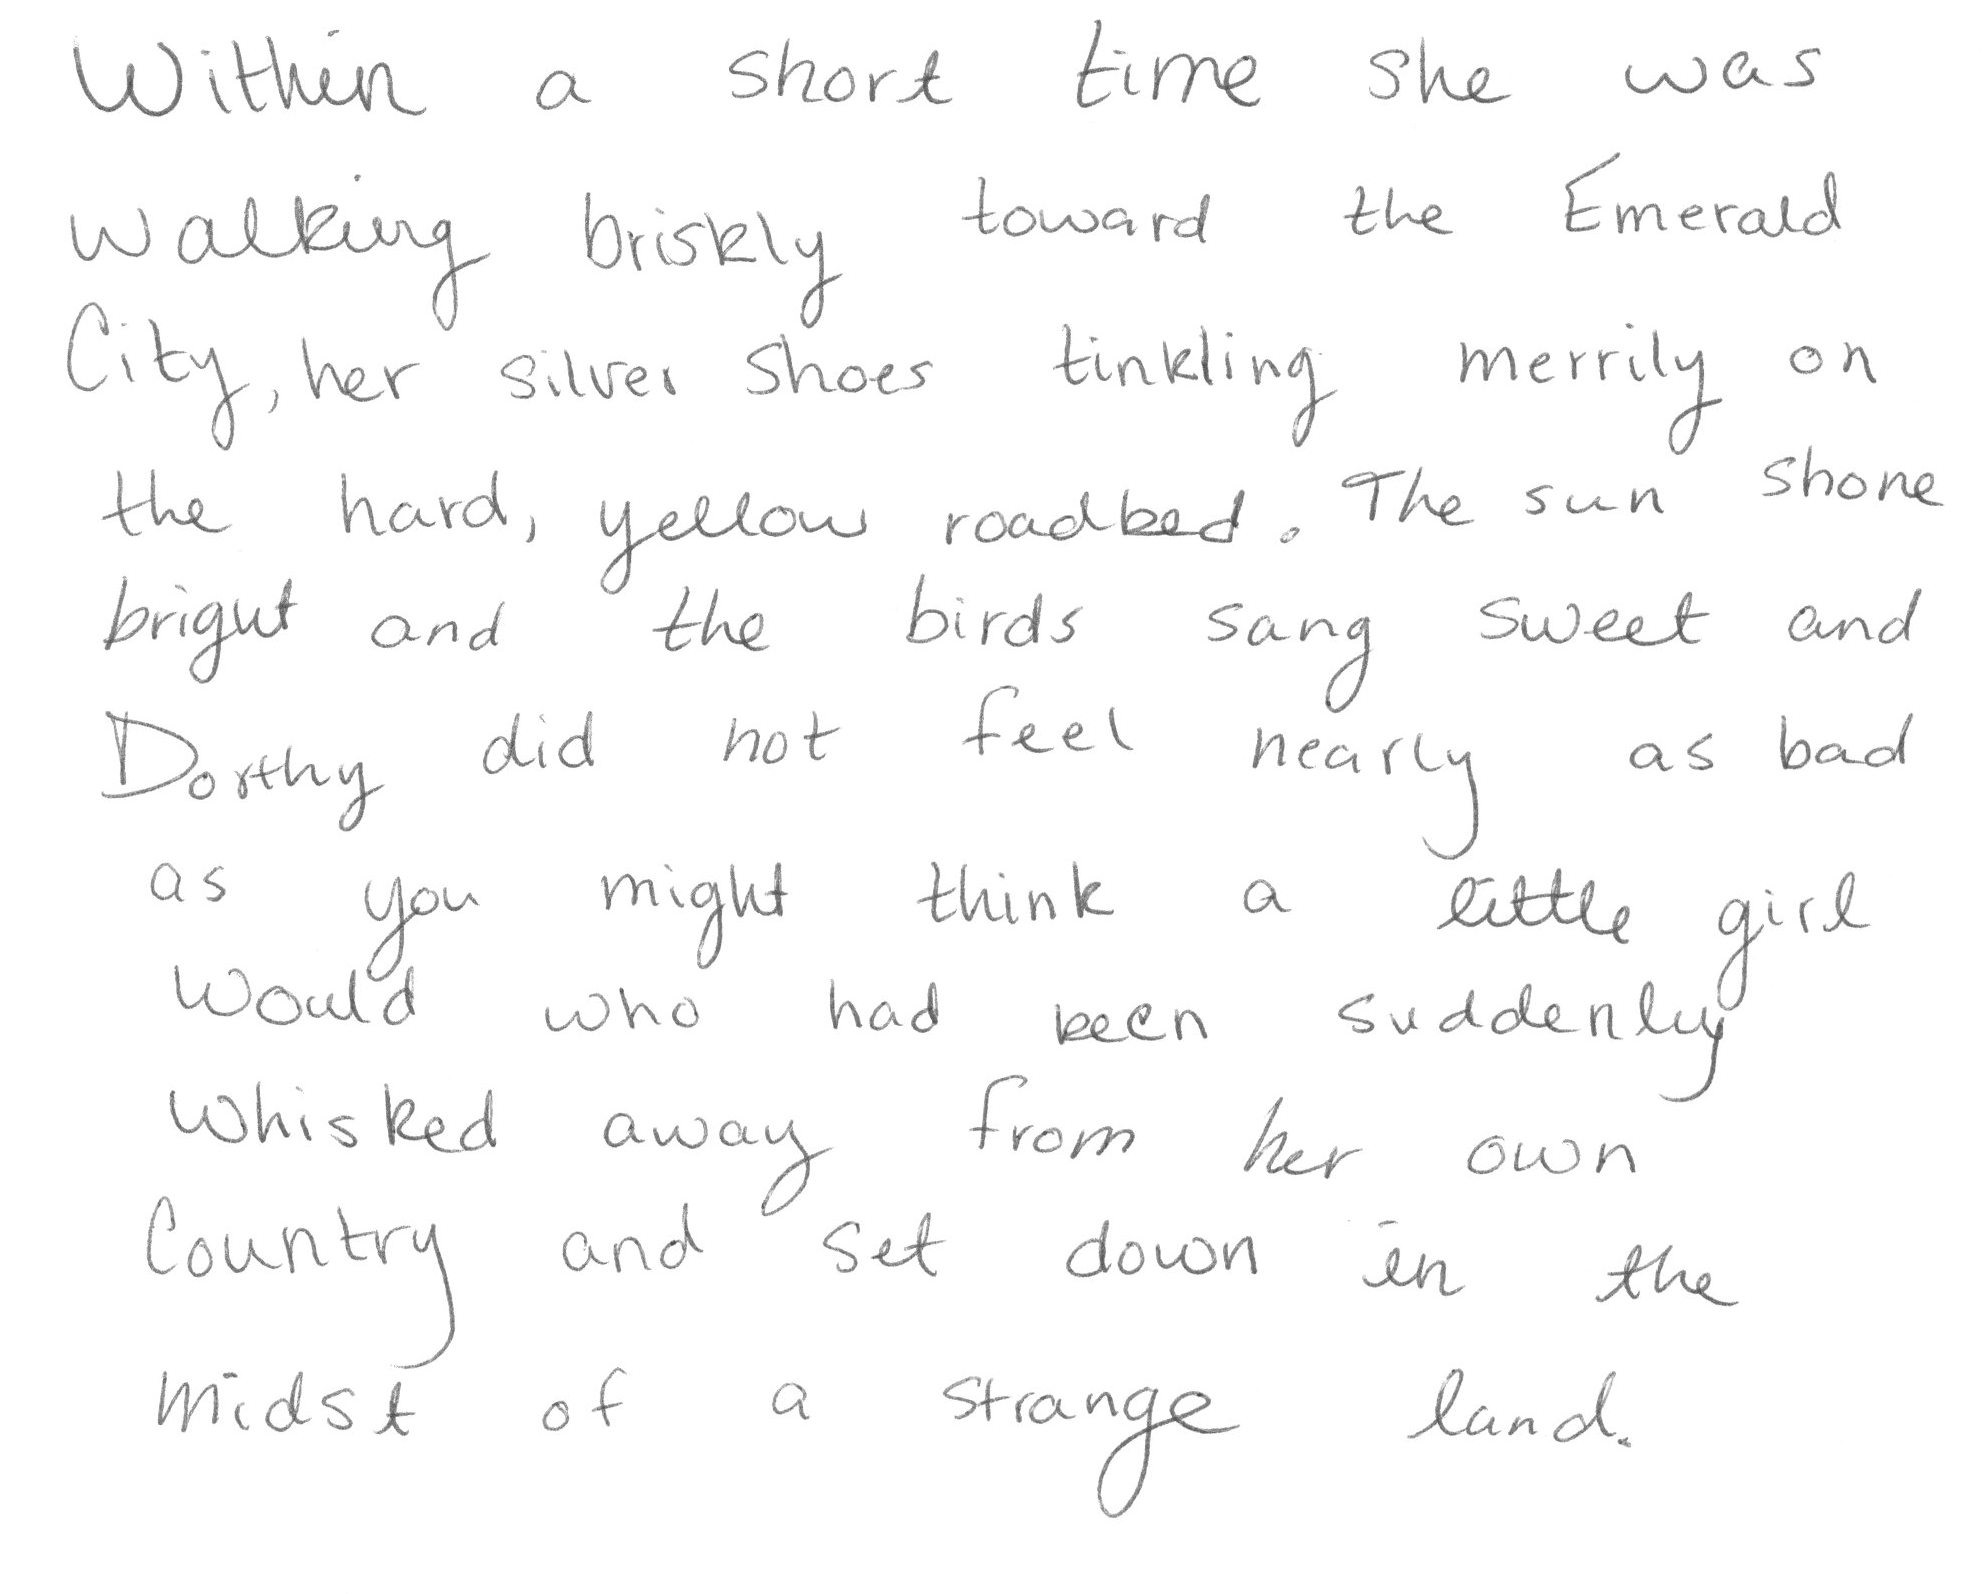 Within a short time she was
walking briskly toward the Emerald
City, her silver shoes tinkling merrily on
the hard, yellow roadbed. The sun shone
bright and the birds sang sweet and
Dorthy did not feel nearly as bad
as you might think a little girl
would who had been suddenly
whisked away from her own
Country and set down in the
midst of a strange land.